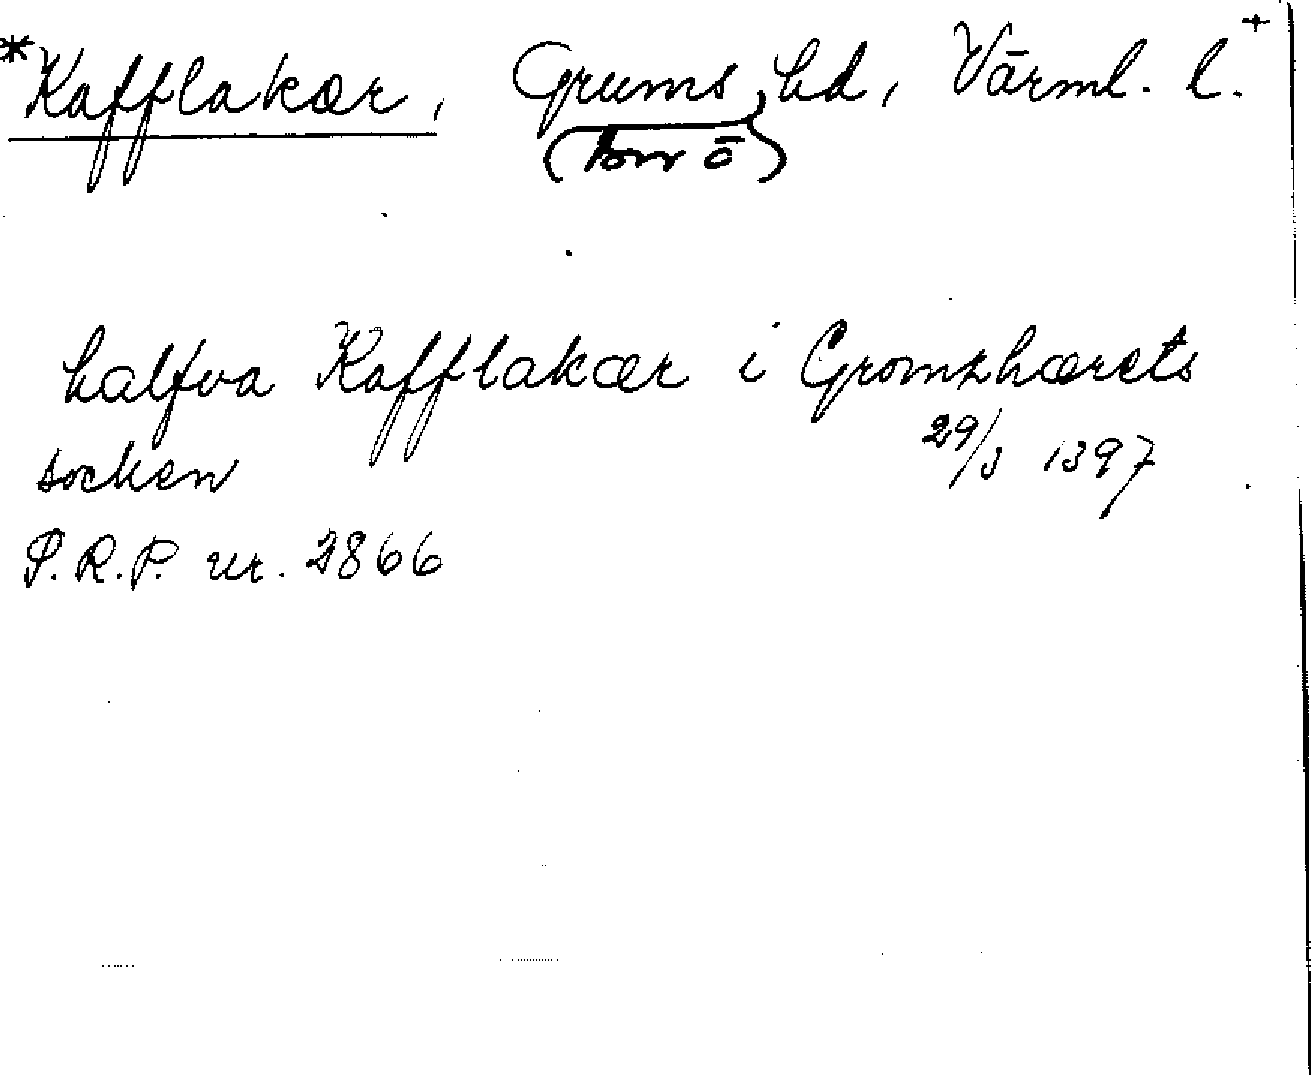 *Kafflakær, Grums hd, Värml. l.+
(Borr ö)
halfva Kafflakær i Gromshærets
socken 29/3 1397
S.R.P. nr. 2866